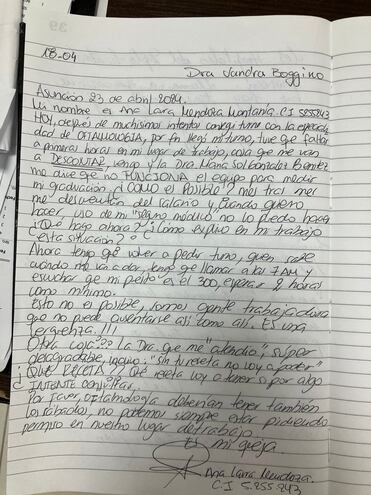 18-04
Dra Sandra Boggino
Asunción 23 de abril 2024.
Mi nombre es Ana Lara Mendoza Montanía. C.I 5255243
HOY, después de muchisimos intentos conseguí turno con la especiali
dad de OFTALMOLOGÍA, por fin llegó mi turno, tuve que faltar
a primeras horas en mi lugar de trabajo, cosa que me van
a DESCONTAR, vengo y la Dra. Maria Sol Gonzalez Benitez
me dice que no FUNCIONA el equipo para medir
mi graduación ¿COMO es Posible? mes tras mes
me descuentan del salario y cuando quiero
hacer uso de mi "seguro médico" no lo puedo hacer
¿Qué hago ahora? ¿Cómo explico en mi trabajo
esta situación?
Ahora tengo que volver a pedir turno, quien sabe
cuándo me van a dar, tengo que llamar a las 7 AM y
escuchar que mi puesto es el 300, esperar 2 horas
como mínimo.
Esto no es posible, somos gente trabajadora
que no puede ausentarse así como así. ES una
vergüenza.!!!
Otra cosa?? La Dra. que me "atendió", súper
desagradable, inquirio: "sin tu receta no voy a poder"
¿QUE RECETA?? Qué receta voy a tener si por algo
INTENTE consultar.
Por Favor, oftalmología deberían tener también
los sábados, no podemos siempre estar pidiendo
permiso en nuestro lugar de trabajo.
Es mi queja.
Ana Lara Mendoza.
C.I 5.255.243